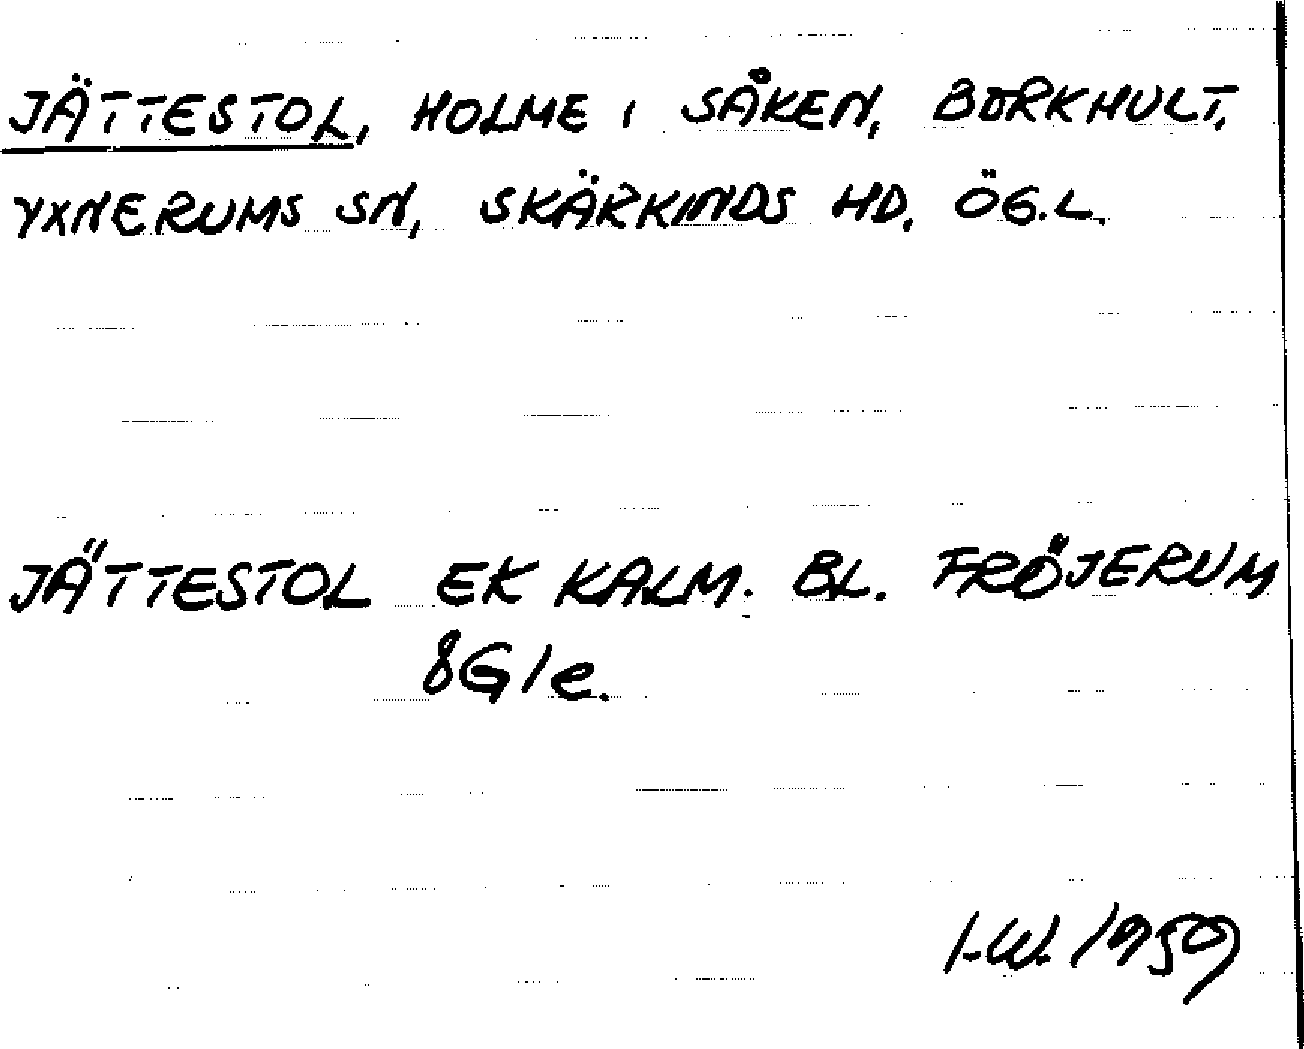 JÄTTESTOL, HOLME I SÅKEN, BORKHULT,
YXNERUMS SN, SKÄRKINDS HD. ÖG.L.
JÄTTESTOL EK KALM. BL. FRÖJERUM
8G1e.
I.W. 1959